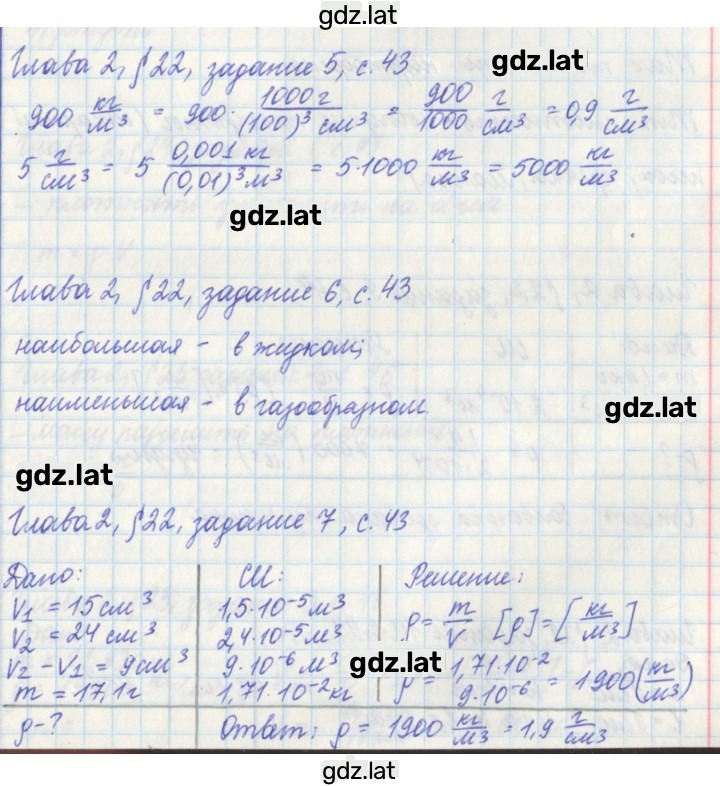 gdz.lat
Глава 2, §22, задание 5, с. 43
gdz.lat
900 кг/м³ = 900 · 1000 г/(100)³ см³ = 900/1000 г/см³ = 0,9 г/см³
5 г/см³ = 5 0,001 кг/(0,01)³ м³ = 5·1000 кг/м³ = 5000 кг/м³
gdz.lat
Глава 2, §22, задание 6, с. 43
наибольшая - в жидком;
наименьшая - в газообразном
gdz.lat
gdz.lat
Глава 2, §22, задание 7, с. 43
Дано: СИ: Решение:
V₁ = 15 см³ 1,5·10⁻⁵ м³ ρ = m/V [ρ] = [кг/м³]
V₂ = 24 см³ 2,4·10⁻⁵ м³
V₂ - V₁ = 9 см³ 9·10⁻⁶ м³ gdz.lat
m = 17,1 г 1,71·10⁻² кг ρ = 1,71·10⁻²/9·10⁻⁶ = 1900 (кг/м³)
ρ - ? Ответ: ρ = 1900 кг/м³ = 1,9 г/см³
gdz.lat